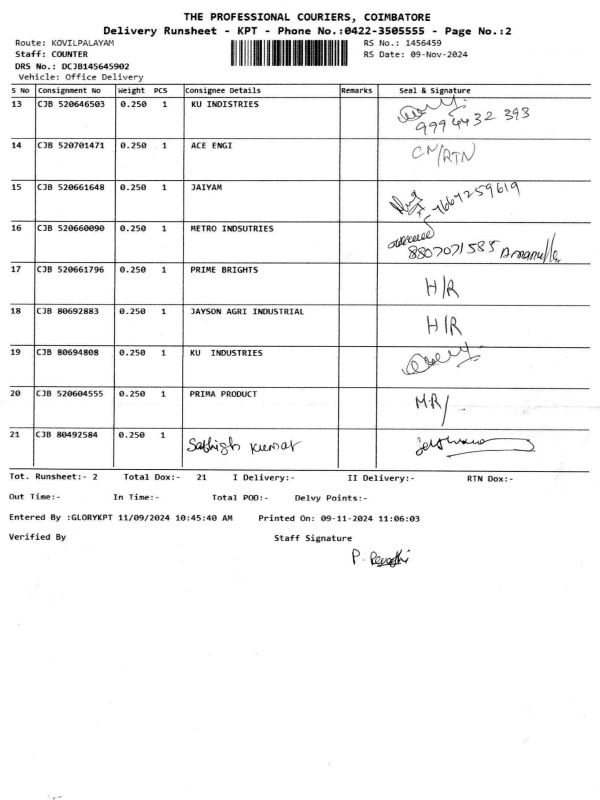 THE PROFESSIONAL COURIERS, COIMBATORE
Delivery Runsheet - KPT - Phone No.:0422-3505555 - Page No.:2
Route: KOVILPALAYAM RS No.: 1456459
Staff: COUNTER RS Date: 09-Nov-2024
DRS No.: DCJB145645902
Vehicle: Office Delivery
S No Consignment No Weight PCS Consignee Details Remarks Seal & Signature
13 CJB 520646503 0.250 1 KU INDISTRIES
9994432 393
14 CJB 520701471 0.250 1 ACE ENGI CN/RTN
15 CJB 520661648 0.250 1 JAIYAM 7667259619
16 CJB 520660090 0.250 1 METRO INDSUTRIES
8807071585
17 CJB 520661796 0.250 1 PRIME BRIGHTS H/R
18 CJB 80692883 0.250 1 JAYSON AGRI INDUSTRIAL H/R
19 CJB 80694808 0.250 1 KU INDUSTRIES
20 CJB 520604555 0.250 1 PRIMA PRODUCT M.R/
21 CJB 80492584 0.250 1 Sathish kumar
Tot. Runsheet:- 2 Total Dox:- 21 I Delivery:- II Delivery:- RTN Dox:-
Out Time:- In Time:- Total POD:- Delvy Points:-
Entered By :GLORYKPT 11/09/2024 10:45:40 AM Printed On: 09-11-2024 11:06:03
Verified By Staff Signature
P. Revathi